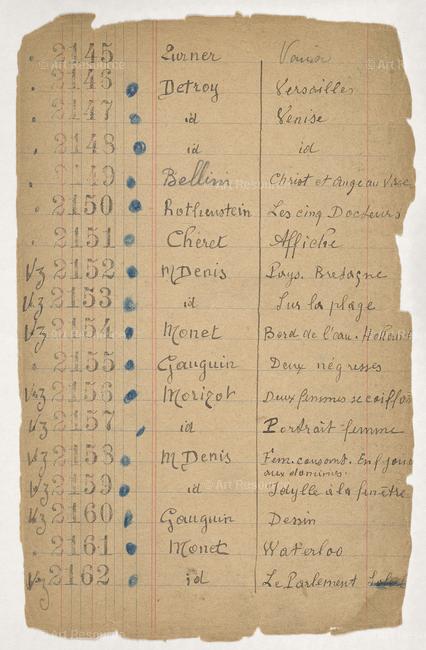 2145 Turner Venise
2146 Detroy Versailles
2147 id Venise
2148 id id
2149 Bellini Christ et Ange au Vase
2150 Rothenstein Les cinq Docteurs
2151 Chéret Affiche
Vz 2152 M Denis Pays. Bretagne
Vz 2153 id Sur la plage
Vz 2154 Monet Bord de l'eau. Hollande
2155 Gauguin Deux négresses
Vz 2156 Morizot Deux femmes se coiffant
Vz 2157 id Portrait femme
Vz 2158 M Denis Fem. cousant. Enf jouant
aux dominos.
Vz 2159 id Idylle à la fenêtre
Vz 2160 Gauguin Dessin
2161 Monet Waterloo
Vz 2162 id Le Parlement
© Art Resource